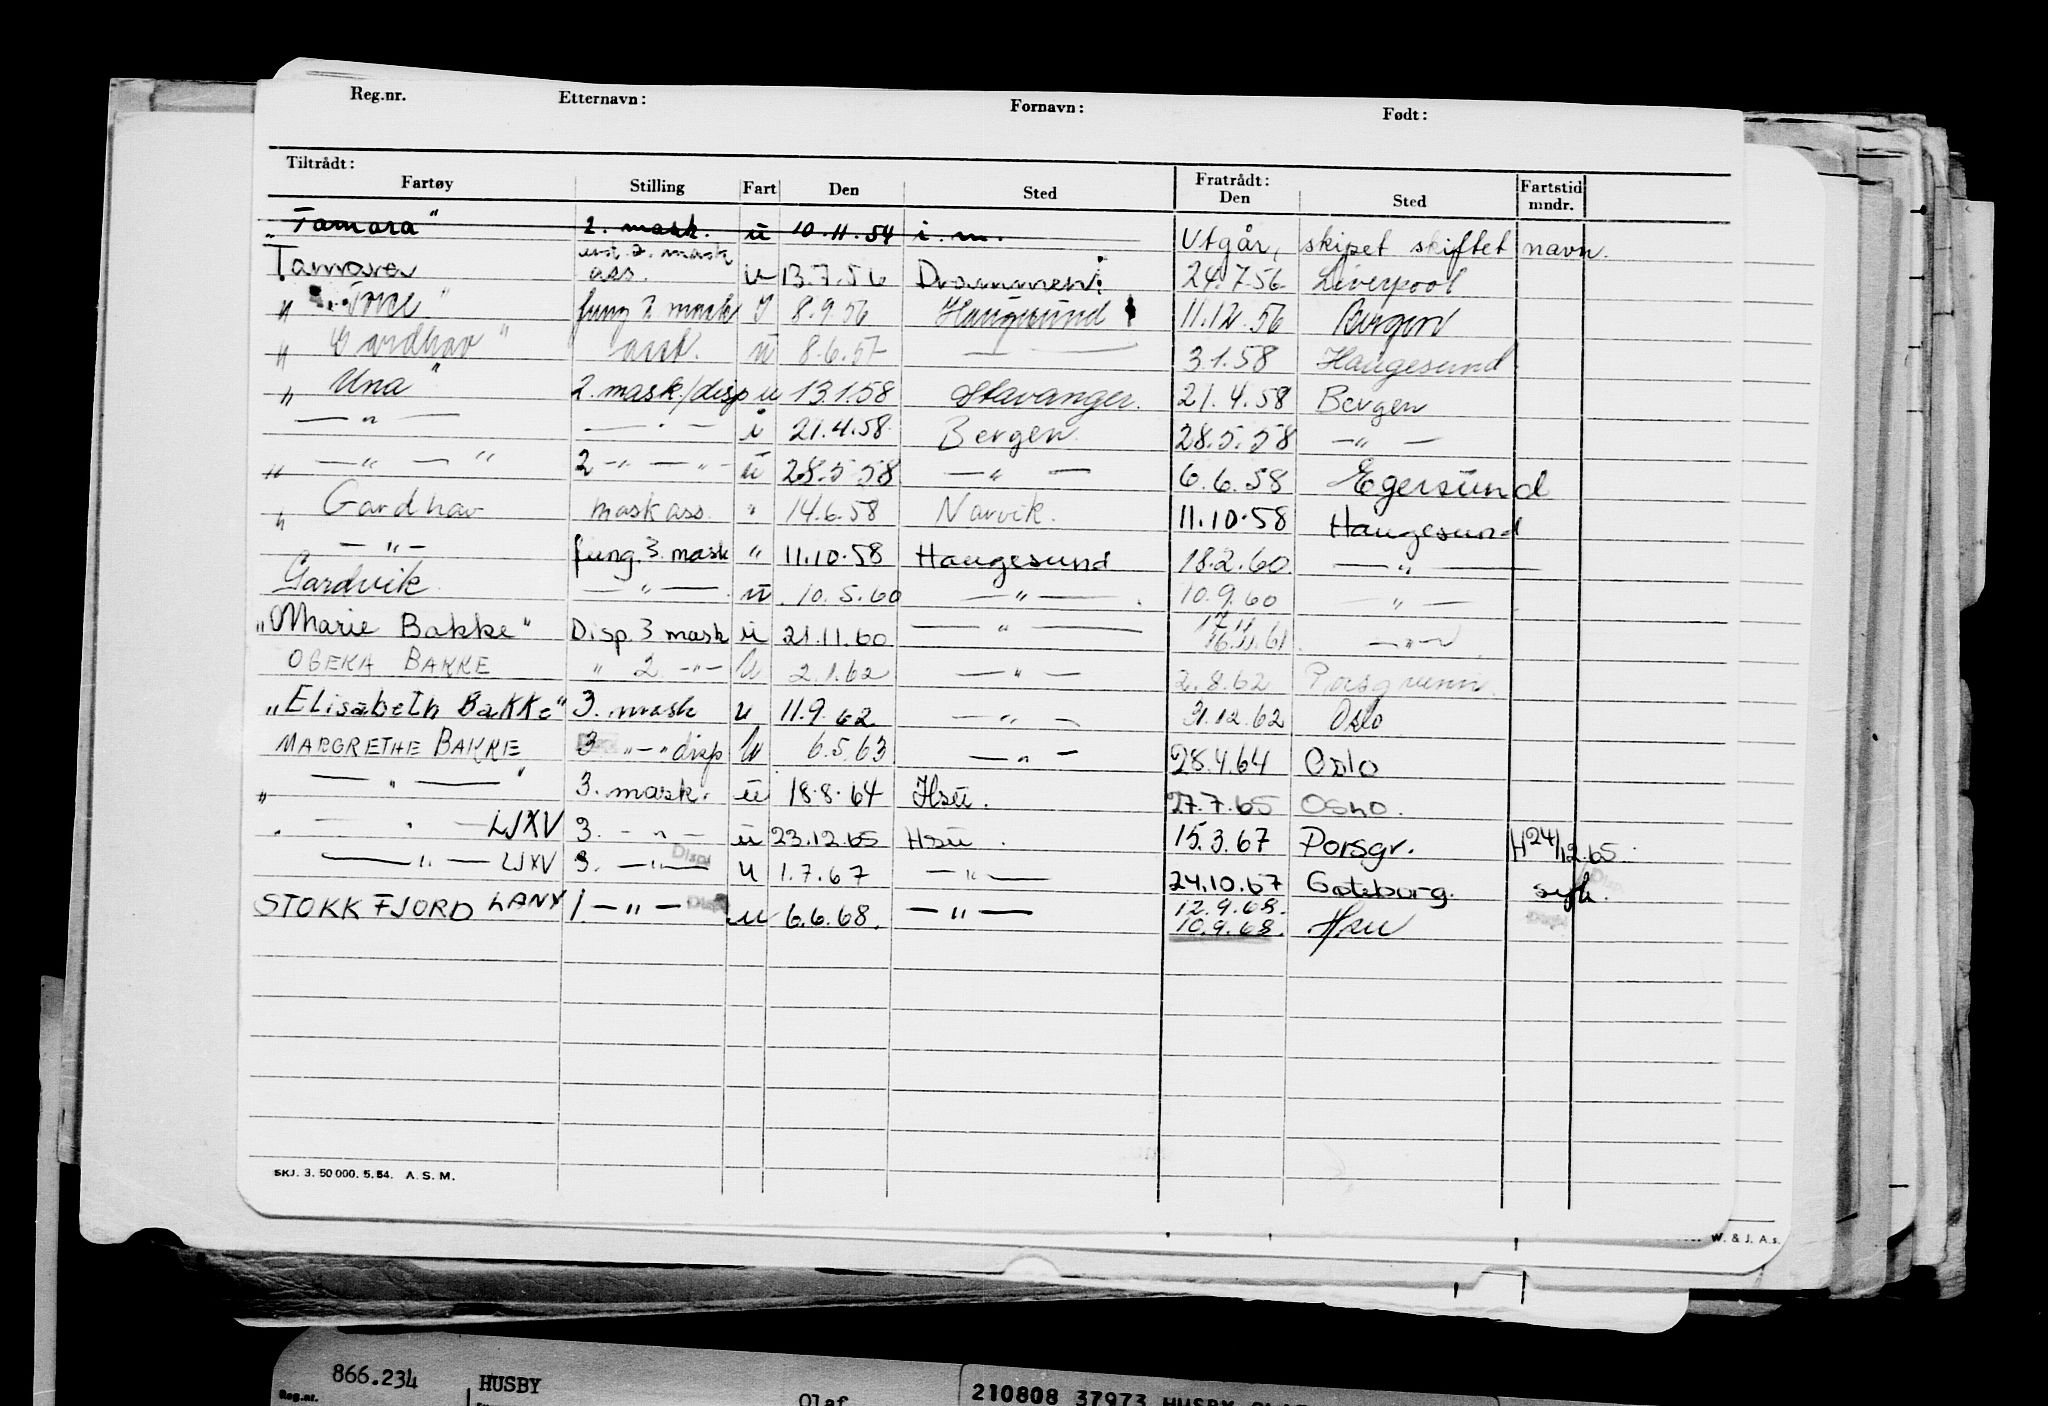 Reg.nr. Etternavn: Fornavn: Født:
Tiltrådt: Fratrådt: Fartstid
Fartøy Stilling Fart Den Sted Den Sted mndr.
„Tamara" 2. mask. u 10.11.54 i.m. Utgår, skipet skiftet navn.
Tamara ass. u 13.7.56 Drammen 24.7.56 Liverpool
" " fung 2 mask I 8.9.56 Haugesund 11.12.56 Bergen
" Gardhav" asst. u 8.6.57 — — 3.1.58 Haugesund
" Una" 2. mask/disp u 13.1.58 Stavanger. 21.4.58 Bergen
— " — — " — i 21.4.58 Bergen 28.5.58 — " —
" — " — " 2 — " — " — u 28.5.58 — " — 6.6.58 Egersund
" Gardhav mask ass. " 14.6.58 Narvik. 11.10.58 Haugesund
— " — fung. 3. mask " 11.10.58 Haugesund 18.2.60 — " —
Gardvik — " — u. 10.5.60 — " — 10.9.60 — " —
„Marie Bakke" Disp. 3 mask u 21.11.60 — " — 16.11.61 — " —
OGEKA BAKKE " 2 — " — U 2.1.62 — " — 2.8.62 Porsgrunn.
„Elisabeth Bakke" 3. mask u 11.9.62 — " — 31.12.62 Oslo
MARGRETHE BAKKE 3 " — " disp U 6.5.63 — " — 28.4.64 Oslo
" — " — " 3. mask. u 18.8.64 Hsu. 27.7.65 OSLO.
— " — LJXV 3. — " — u 23.12.65 Hsu. 15.3.67 Porsgr. H 24/12.65
— " — LJXV 3. — " — Disp u 1.7.67 — " — 24.10.67 Gøteborg. syk.
STOKKFJORD LANX 1 — " — u 6.6.68. — " — 12.9.68.
10.9.68. Hsu
SKJ. 3. 50 000. 5. 54. A. S. M.
W. & J. A.s.
866.234 HUSBY
Reg.nr. Olaf 210808 37973 HUSBY